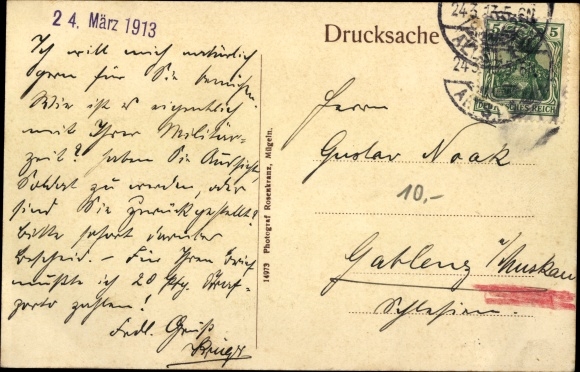 24. März 1913
Ich will mich natürlich
gern für Sie bemühen.
Wie ist es eigentlich
mit Ihrer Militär-
zeit? Haben Sie Aussicht,
Soldat zu werden, oder
sind Sie zurückgestellt?
Bitte sofort darüber
Bescheid. – Für Ihren Brief
mußte ich 20 Pfg. Straf-
porto zahlen!
Frdl. Gruß
14973 Photograf Rosenkranz, Mügeln.
Drucksache
24.3.13.5-6N
5 5
DEUTSCHES REICH
Herrn
Gustav Noak
10,-
Gablenz b/Muskau
Schlesien.